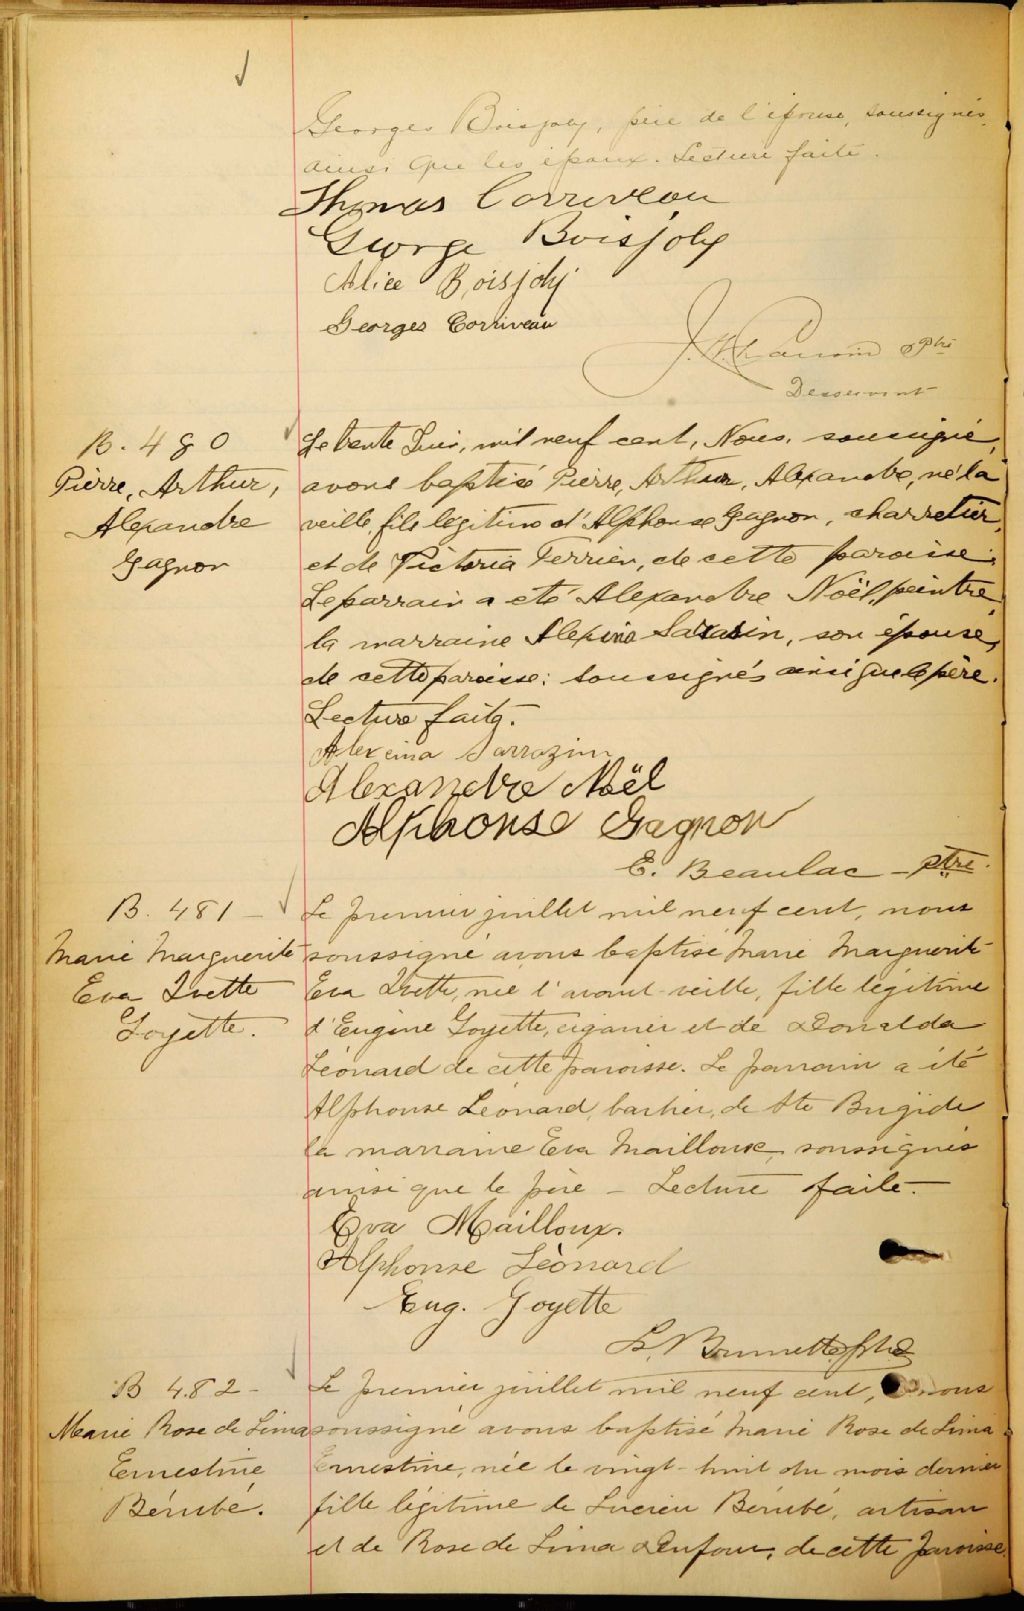 Georges Boisjoly, père de l'épouse, soussignés
ainsi que les époux. Lecture faite.
Thomas Corriveau
George Boisjoly
Alice Boisjoly
Georges Corriveau
ptre
Desservant
B. 480
Pierre, Arthur,
Alexandre
Gagnon
Le trente Juin, mil neuf cent, Nous, soussigné,
avons baptisé Pierre, Arthur, Alexandre, né la
veille, fils légitime d'Alphonse Gagnon, charretier,
et de Victoria Ferrier, de cette paroisse.
Le parrain a été Alexandre Noël, peintre,
la marraine Alexina Sarasin, son épouse,
de cette paroisse: soussignés ainsi que le père.
Lecture faite.
Alexina Sarrazin
Alexandre Noël
Alphonse Gagnon
E. Beaulac - ptre.
B. 481 -
Marie Marguerite
Eva Ivette
Goyette.
Le premier juillet mil neuf cent, nous
soussigné avons baptisé Marie Marguerite
Eva Ivette, née l'avant-veille, fille légitime
d'Eugène Goyette, cigarier et de Donalda
Léonard de cette paroisse. Le parrain a été
Alphonse Léonard, barbier, de Ste Brigide
la marraine Eva Mailloux, soussignés
ainsi que le père - Lecture faite.
Eva Mailloux.
Alphonse Lèonard
Eug. Goyette
Brunette ptre
B 482 -
Marie Rose de Lima
Ernestine
Bérubé.
Le premier juillet mil neuf cent, nous
soussigné avons baptisé Marie Rose de Lima
Ernestine, née le vingt-huit du mois dernier
fille légitime de Lucien Bérubé, artisan
et de Rose de Lima Dufour, de cette paroisse.